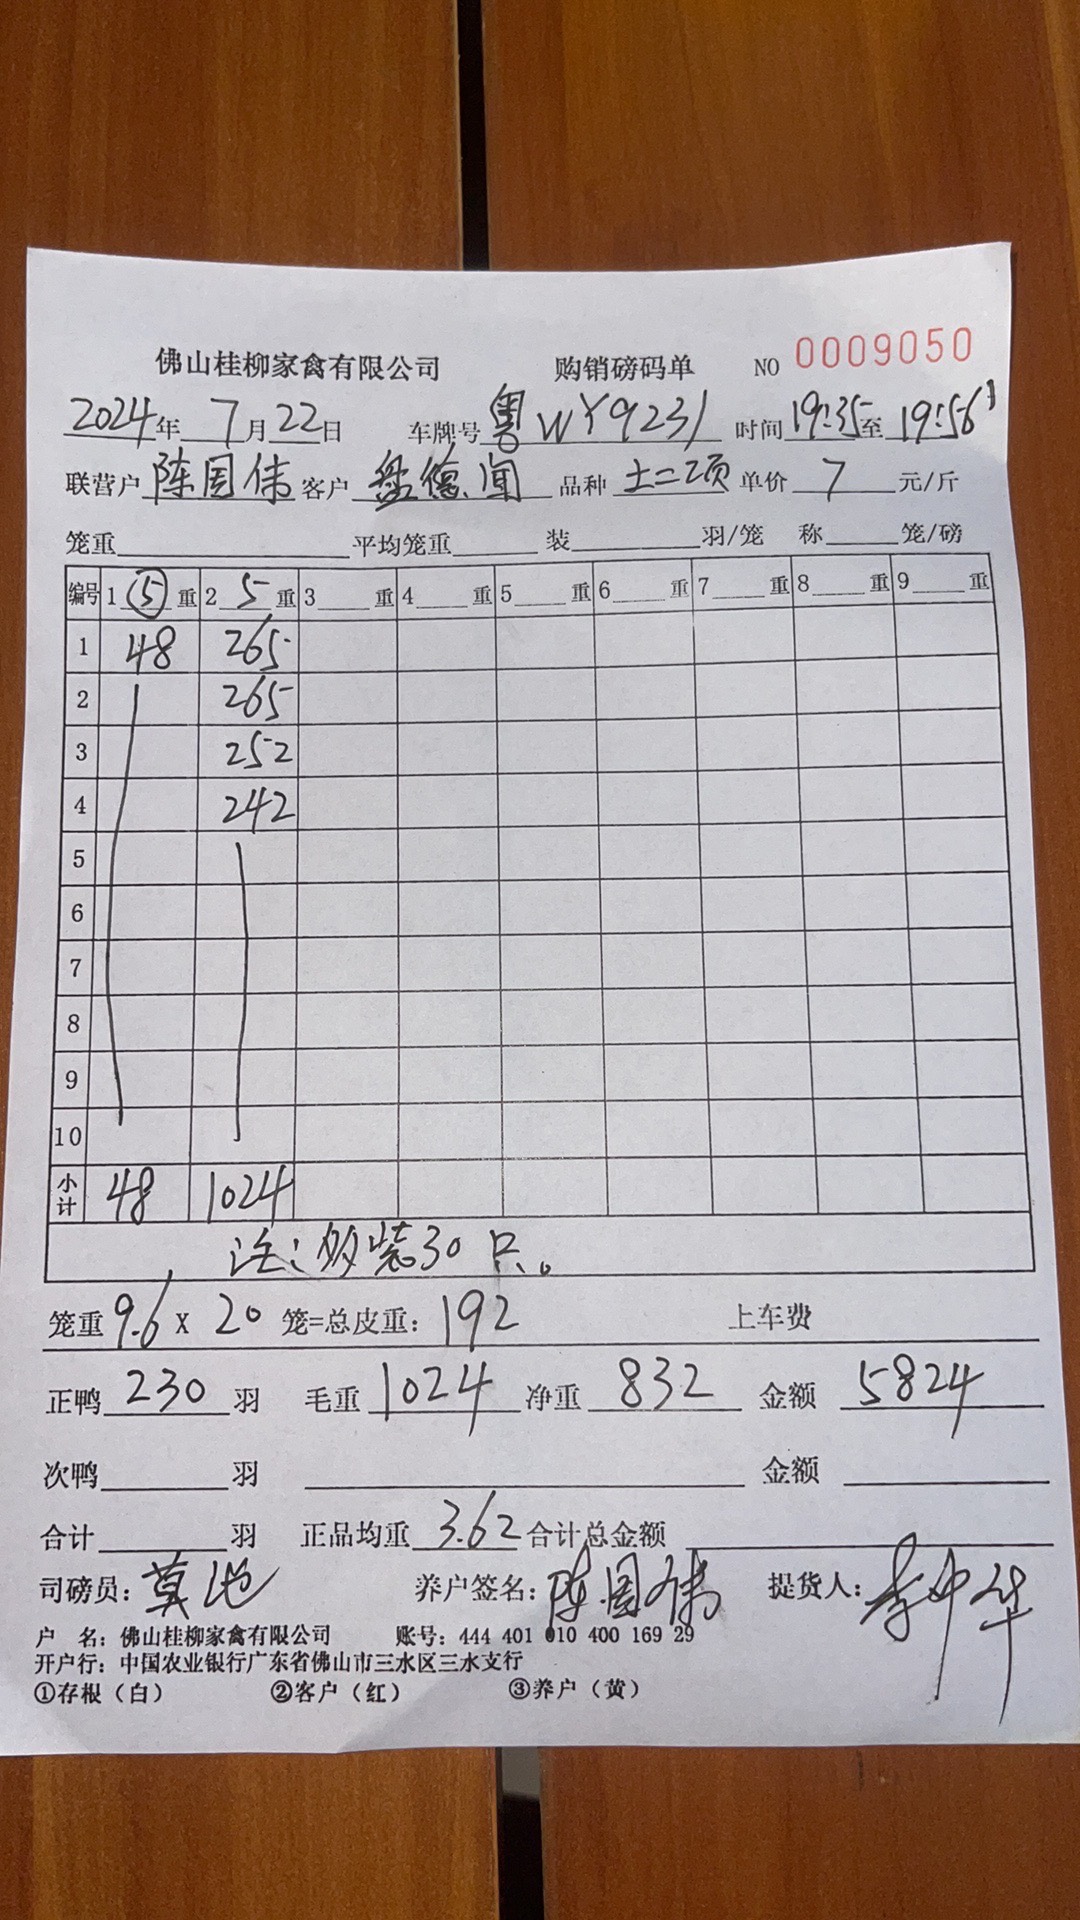 佛山桂柳家禽有限公司 购销磅码单 NO 0009050
2024年 7月22日 车牌号 粤WY9231 时间 19:35至 19:56
联营户 陈国伟 客户 盘德闻 品种 土二项 单价 7 元/斤
笼重 平均笼重 装 羽/笼 称 笼/磅
编号 1 ⑤ 重 2 5 重 3 重 4 重 5 重 6 重 7 重 8 重 9 重
1 48 265
2 265
3 252
4 242
5
6
7
8
9
10
小计 48 1024
注:多装30只。
笼重 9.6 X 20 笼=总皮重: 192 上车费
正鸭 230 羽 毛重 1024 净重 832 金额 5824
次鸭 羽 金额
合计 羽 正品均重 3.62 合计总金额
司磅员: 莫 养户签名: 陈国伟 提货人: 李中华
户 名: 佛山桂柳家禽有限公司 账号: 444 401 010 400 169 29
开户行: 中国农业银行广东省佛山市三水区三水支行
①存根(白) ②客户(红) ③养户(黄)